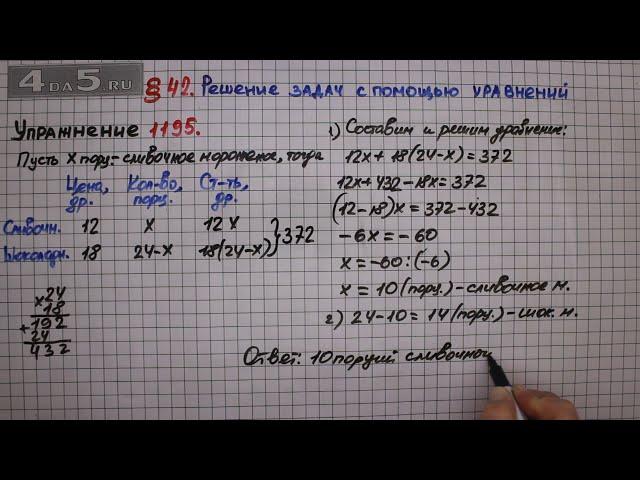 4DA5.RU
§ 42. Решение задач с помощью уравнений
Упражнение 1195.
Пусть x порц.- сливочное мороженое, тогда
Цена, др. Кол-во, порц. Ст-ть, др.
Сливочн. 12 x 12x
Шоколадн. 18 24-x 18(24-x) } 372
×24
18
+192
24
432
1) Составим и решим уравнение:
12x+18(24-x)=372
12x+432-18x=372
(12-18)x=372-432
-6x=-60
x=-60:(-6)
x=10(порц.)-сливочное м.
2) 24-10=14(порц.)-шок. м.
Ответ: 10 порций сливочног